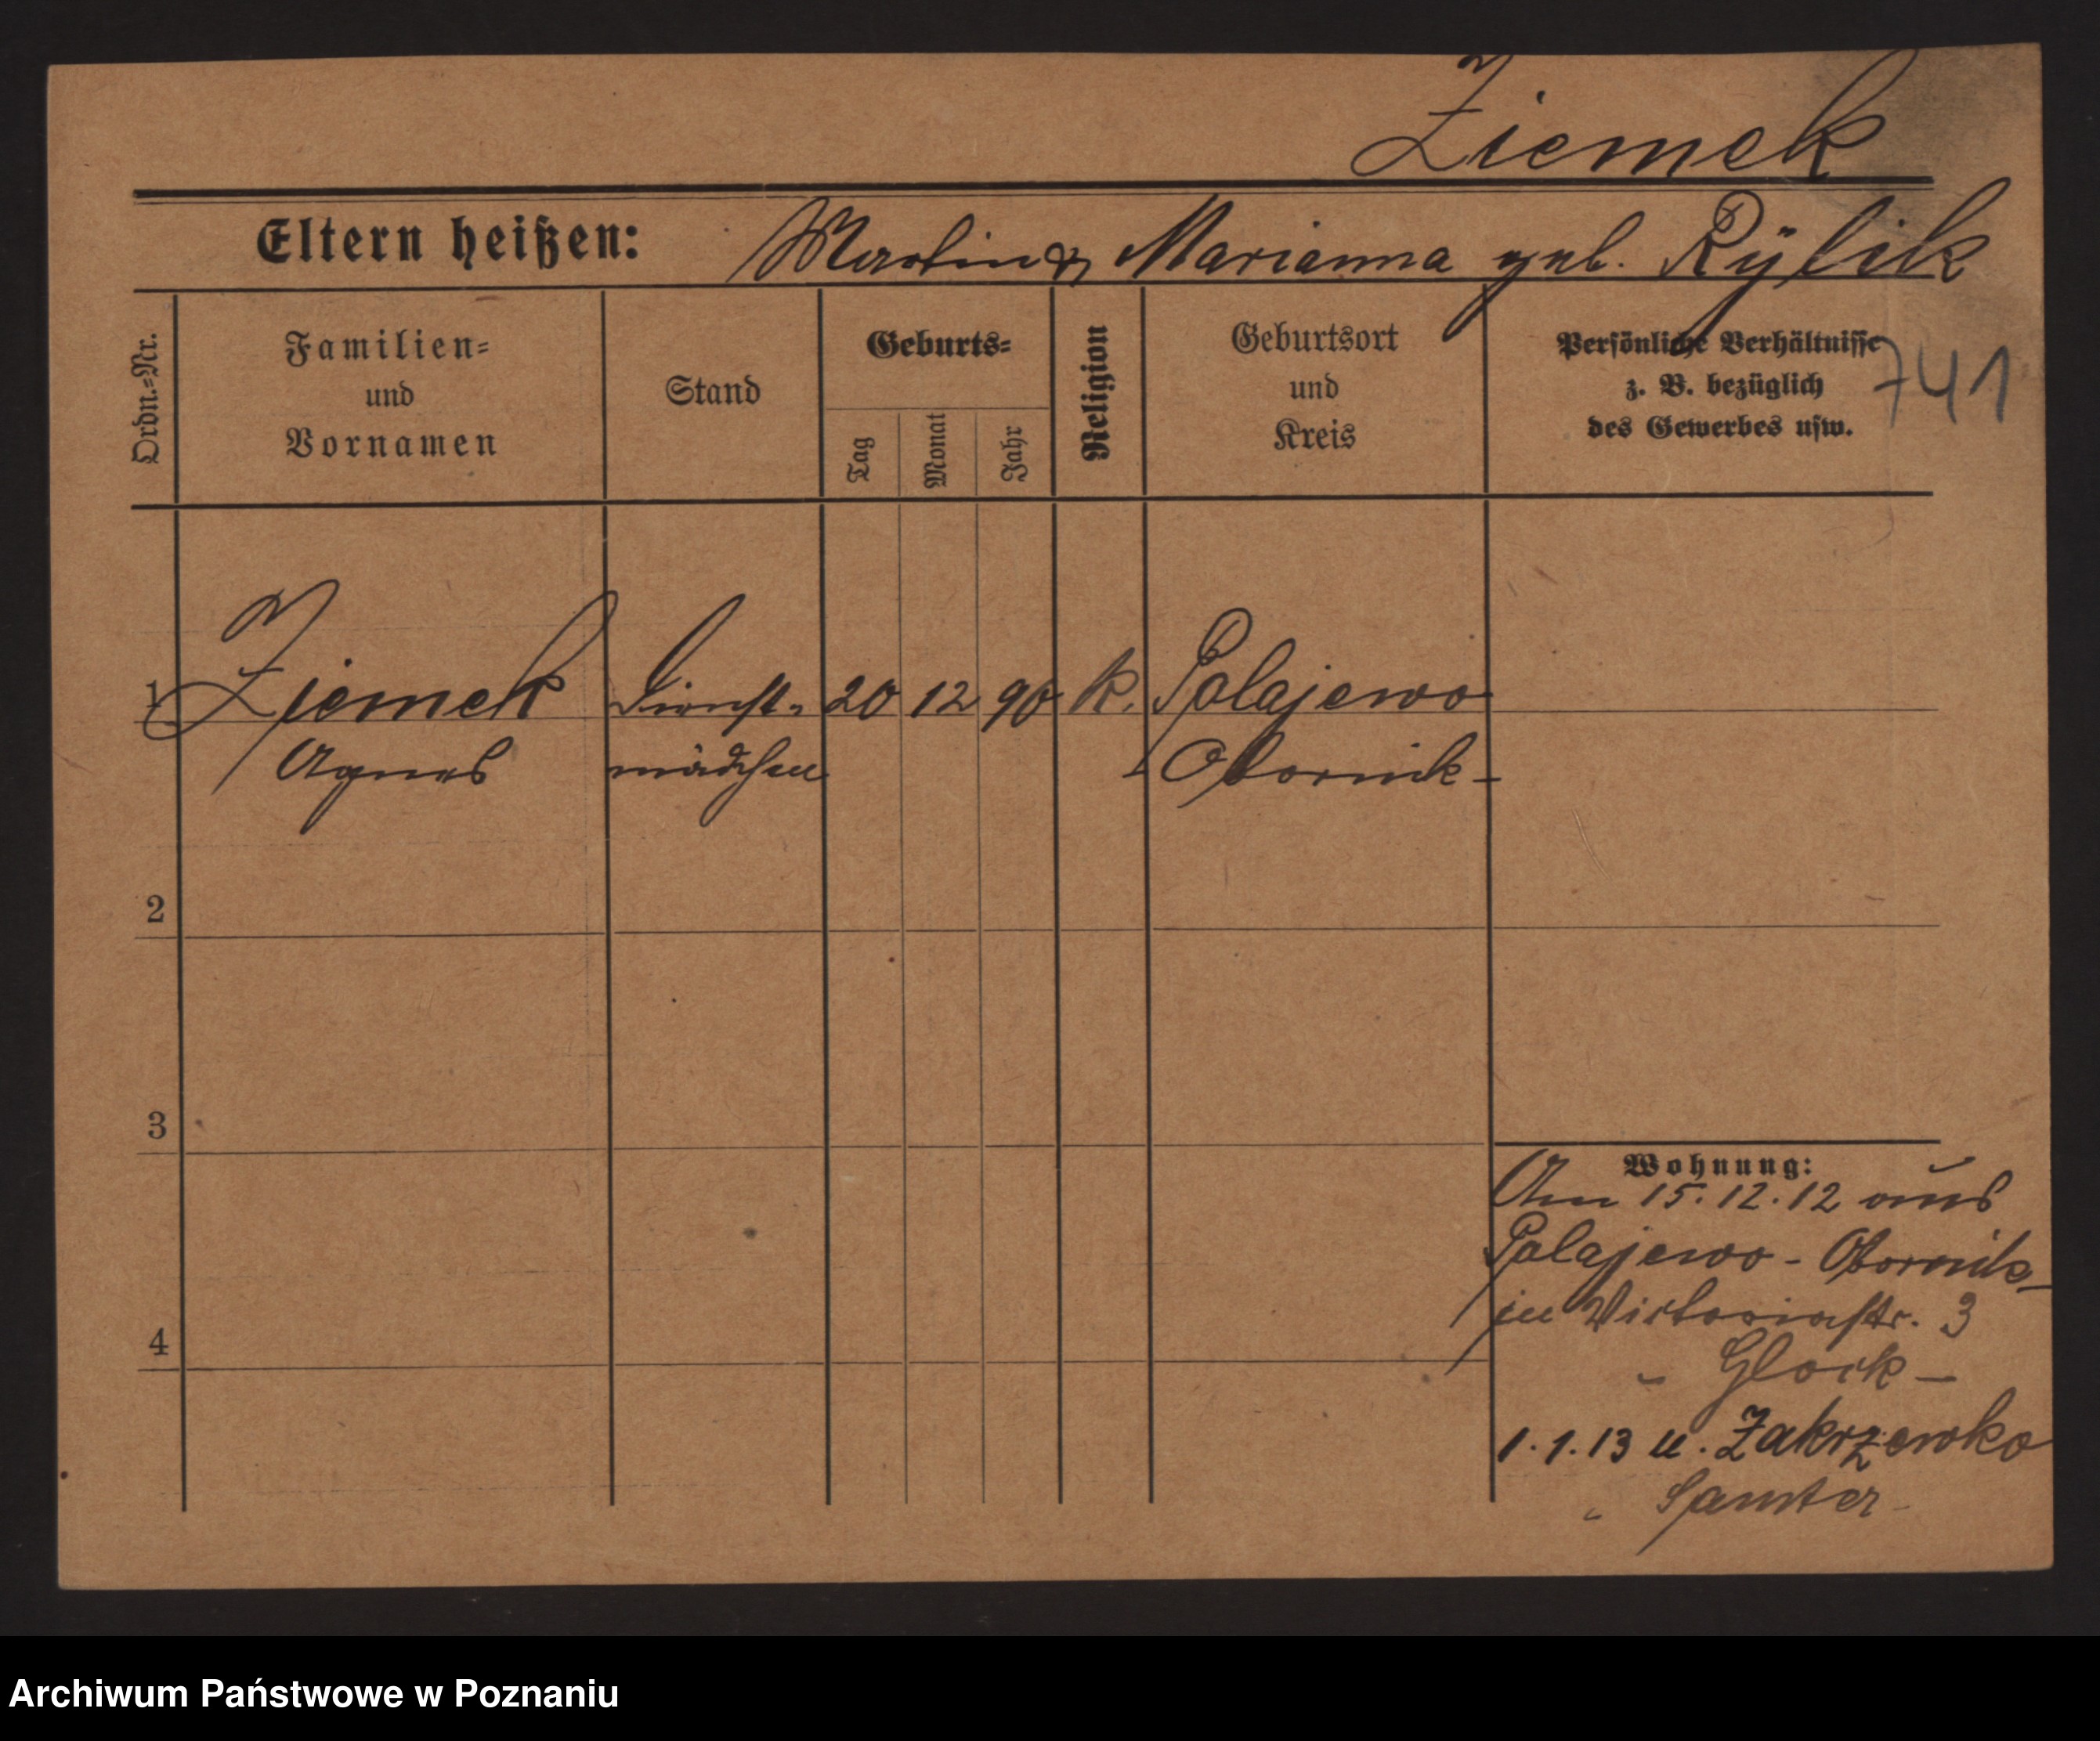 Ziemek
Eltern heißen: Martin & Marianna geb. Rÿlik
Ordn.=Nr.
Familien=
und
Vornamen
Stand
Geburts=
Tag
Monat
Jahr
Religion
Geburtsort
und
Kreis
Persönliche Verhältnisse
z. B. bezüglich
des Gewerbes usw.
741
1 Ziemek Dienst= 20 12 90 k. Polajewo
Agnes mädchen Obornik
2
3
4
Wohnung:
Am 15.12.12 aus
Polajewo - Obornik
in Victoriastr. 3
" Glock -
1.1.13 n. Zakrzewko
" Samter -
Archiwum Państwowe w Poznaniu